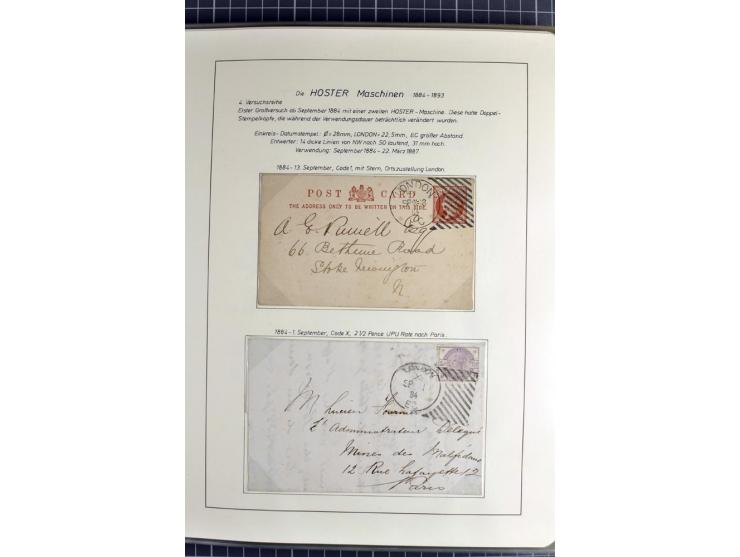 Die HOSTER Maschinen 1884-1893
4. Versuchsreihe
Erster Großversuch ab September 1884 mit einer zweiten HOSTER-Maschine. Diese hatte Doppel-
Stempelköpfe, die während der Verwendungsdauer beträchtlich verändert wurden.
Einkreis-Datumstempel: Ø = 28mm, LONDON = 22,5mm, EC großer Abstand.
Entwerter: 14 dicke Linien von NW nach SO laufend, 31 mm hoch.
Verwendung: September 1884 - 22. März 1887.
1884-13. September, Code 1, mit Stern, Ortszustellung London.
POST CARD
THE ADDRESS ONLY TO BE WRITTEN ON THIS SIDE.
LONDON
A G Esq
66 Bethune Road
Stoke Newington
N.
1884-1. September, Code X, 2 1/2 Pence UPU Rate nach Paris.
LONDON
X
SP 1
84
EC
M Lucien
L'Administrateur Délégué
Mines des
12 Rue Lafayette 12
Paris